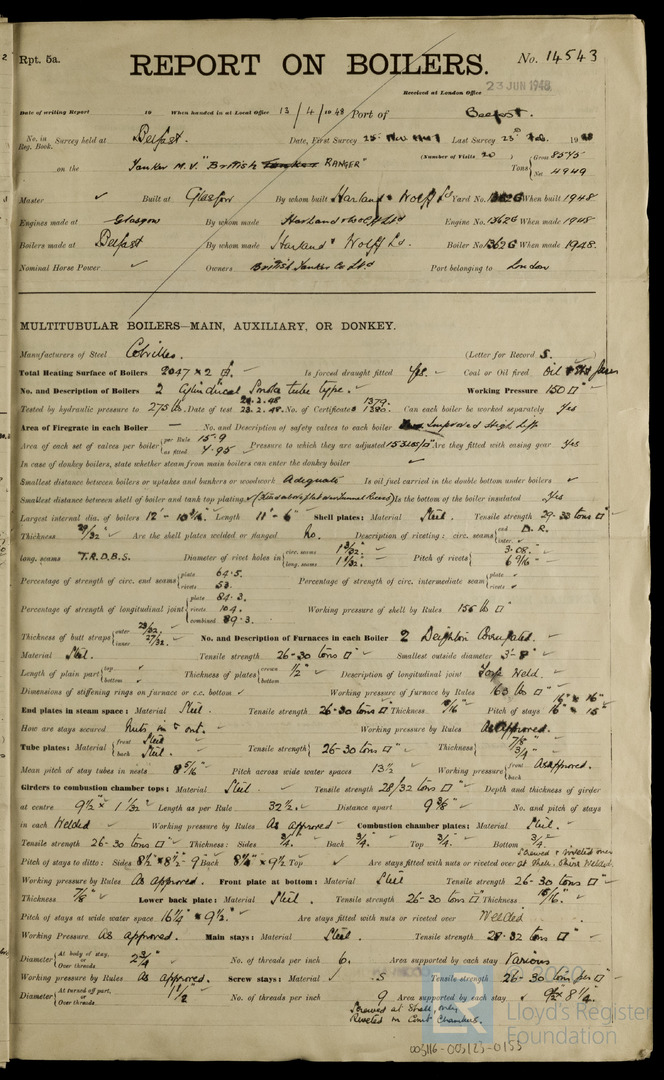 Rpt. 5a.
REPORT ON BOILERS.
No. 14543
Received at London Office
23 JUN 1948
Date of writing Report 19 When handed in at Local Office 13/4/1948 Port of Belfast.
No. in Reg. Book. Survey held at Belfast. Date, First Survey 25 Nov 1947 Last Survey 23rd Feb. 1948
(Number of Visits 20)
on the Tanker M.V. "British Tanker RANGER" Tons { Gross 8575 Net 4949
Master ✓ Built at Glasgow By whom built Harland & Wolff Ld Yard No. 1362G When built 1948.
Engines made at Glasgow By whom made Harland & Wolff Ltd Engine No. 1362G When made 1948
Boilers made at Belfast By whom made Harland & Wolff Ld. Boiler No. 1362G When made 1948.
Nominal Horse Power ✓ Owners British Tanker Co Ltd Port belonging to London
MULTITUBULAR BOILERS—MAIN, AUXILIARY, OR DONKEY.
Manufacturers of Steel Colvilles. (Letter for Record S. )
Total Heating Surface of Boilers 2047 × 2 Is forced draught fitted Yes. ✓ Coal or Oil fired Oil
No. and Description of Boilers 2 Cylindrical Smoke tube type. ✓ Working Pressure 150 □" ✓
Tested by hydraulic pressure to 275 lbs. Date of test 23.2.48 No. of Certificate 1379. 1380. Can each boiler be worked separately Yes
Area of Firegrate in each Boiler — No. and Description of safety valves to each boiler Improved High Lift
Area of each set of valves per boiler { per Rule 15.9 as fitted 7.95 ✓ Pressure to which they are adjusted 153 lbs/□" Are they fitted with easing gear Yes
In case of donkey boilers, state whether steam from main boilers can enter the donkey boiler ✓
Smallest distance between boilers or uptakes and bunkers or woodwork Adequate Is oil fuel carried in the double bottom under boilers ✓
Smallest distance between shell of boiler and tank top plating ✓ Is the bottom of the boiler insulated Yes
Largest internal dia. of boilers 12' - 10 3/16" Length 11' - 6" Shell plates: Material Steel. Tensile strength 29-33 tons □"
Thickness 29/32 ✓ Are the shell plates welded or flanged No. Description of riveting: circ. seams { end D.R. inter. ✓
long. seams T.R.D.B.S. Diameter of rivet holes in { circ. seams 1 3/32" long. seams 1 1/32" Pitch of rivets { 3.08" 6 9/16"
Percentage of strength of circ. end seams { plate 64.5. rivets 53. Percentage of strength of circ. intermediate seam { plate ✓ rivets ✓
Percentage of strength of longitudinal joint { plate 84.3. rivets 104. combined 89.3. Working pressure of shell by Rules 156 lb □"
Thickness of butt straps { outer 23/32 inner 27/32 No. and Description of Furnaces in each Boiler 2 Deighton Corrugated.
Material Steel. Tensile strength 26-30 tons □" ✓ Smallest outside diameter 3'-8" ✓
Length of plain part { top bottom ✓ Thickness of plates { crown bottom 1/2" ✓ Description of longitudinal joint Weld.
Dimensions of stiffening rings on furnace or c.c. bottom ✓ Working pressure of furnace by Rules 160 lbs □" ✓
End plates in steam space: Material Steel Tensile strength 26-30 tons □" Thickness Pitch of stays 16" × 16" 16" × 15"
How are stays secured Nuts in & out. Working pressure by Rules As approved.
Tube plates: Material { front Steel back Steel. Tensile strength { 26-30 tons □" ✓ Thickness { 7/8" 3/4"
Mean pitch of stay tubes in nests 8 5/16" Pitch across wide water spaces 13 1/2 Working pressure { front back As approved.
Girders to combustion chamber tops: Material Steel. Tensile strength 28/32 tons □" Depth and thickness of girder
at centre 9 1/2" × 1 1/32" Length as per Rule 32 1/2. Distance apart 9 3/8" No. and pitch of stays
in each Welded Working pressure by Rules As approved Combustion chamber plates: Material Steel.
Tensile strength 26-30 tons □" Thickness: Sides 3/4. Back 3/4. Top 3/4. Bottom 3/4
Pitch of stays to ditto: Sides 8 1/2" × 8 1/2" Back 8 1/4" × 9 1/2 Top ✓ Are stays fitted with nuts or riveted over
Screwed & riveted over at Shell. Welded.
Working pressure by Rules As approved. Front plate at bottom: Material Steel Tensile strength 26-30 tons □"
Thickness 7/8" Lower back plate: Material Steel. Tensile strength 26-30 tons □" Thickness
Pitch of stays at wide water space 16 1/4" × 9 1/2" Are stays fitted with nuts or riveted over Welded
Working Pressure As approved. Main stays: Material Steel. Tensile strength 28-32 tons □"
Diameter { At body of stay, or Over threads. 2 3/4" No. of threads per inch 6. Area supported by each stay Various
Working pressure by Rules As approved. Screw stays: Material S Tensile strength 26-30 tons per □"
Diameter { At turned off part, or Over threads. 1 1/2" No. of threads per inch 9 Area supported by each stay 9 1/2 × 8 1/4.
Screwed at Shell, only
Riveted in Comb. Chambers.
LR
Lloyd's Register
Foundation
003116-003123-0155